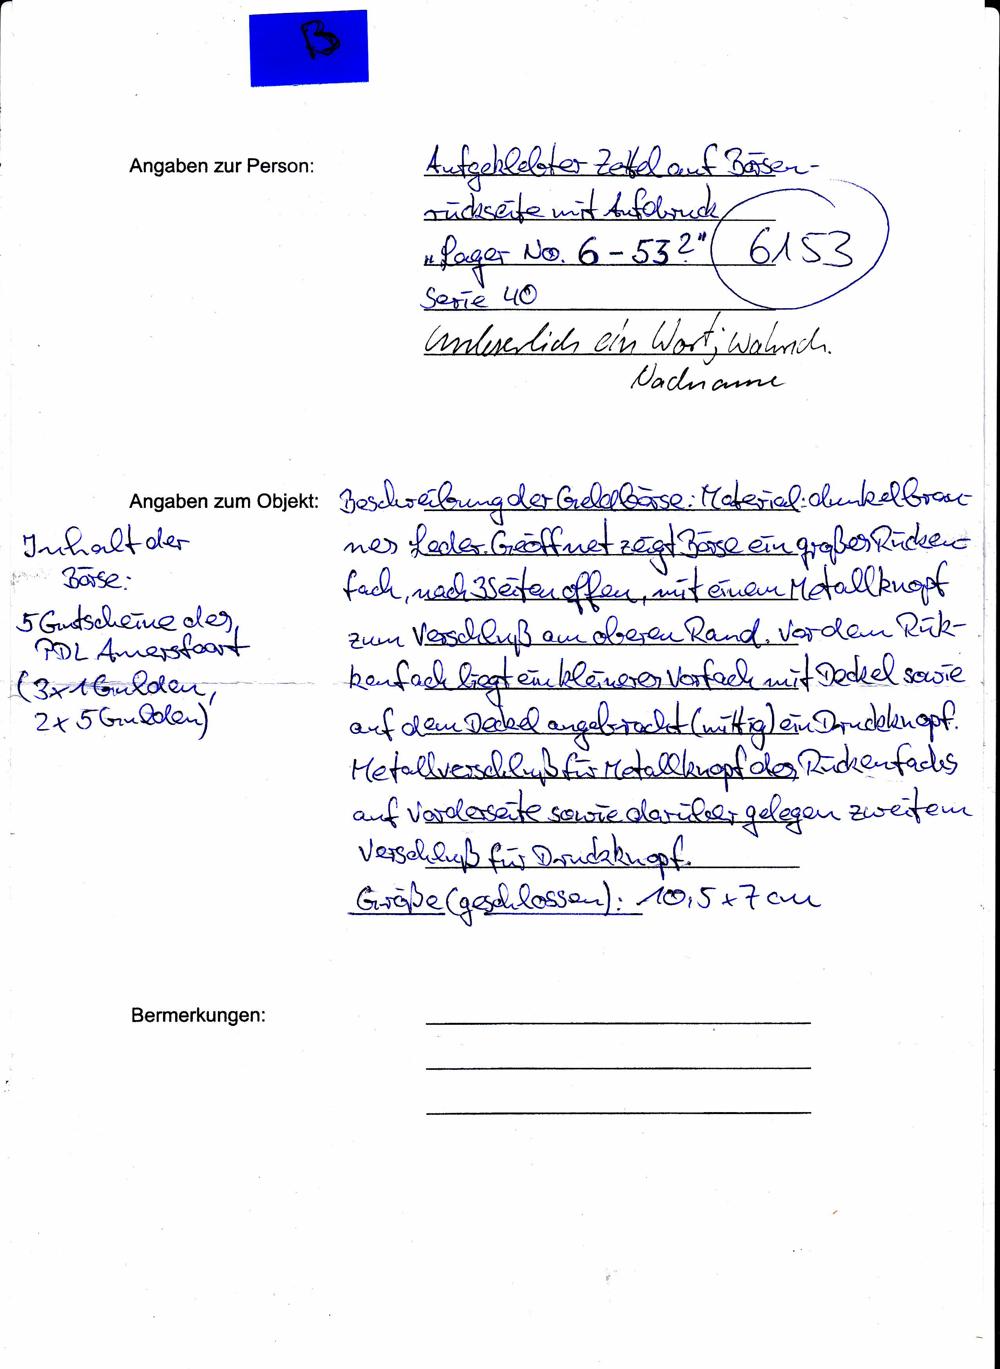 B
Angaben zur Person:
Aufgeklebter Zettel auf Börsen-
rückseite mit Aufdruck
„Lager No. 6 - 53?"
6153
Serie 40
Unleserlich ein Wort; wahrsch.
Nachname
Angaben zum Objekt:
Beschreibung der Geldbörse: Material: dunkelbrau-
nes Leder. Geöffnet zeigt Börse ein großes Rücken-
fach, nach 3 Seiten offen, mit einem Metallknopf
zum Verschluß am oberen Rand. Vor dem Rük-
kenfach liegt ein kleineres Vorfach mit Deckel sowie
auf dem Deckel angebracht (mittig) ein Druckknopf.
Metallverschluß für Metallknopf des Rückenfachs
auf Vorderseite sowie darüber gelegen zweitem
Verschluß für Druckknopf.
Größe (geschlossen): 10,5 x 7 cm
Inhalt der
Börse:
5 Gutscheine des
PDL Amersfoort
(3 x 1 Gulden,
2 x 5 Gulden)
Bermerkungen: